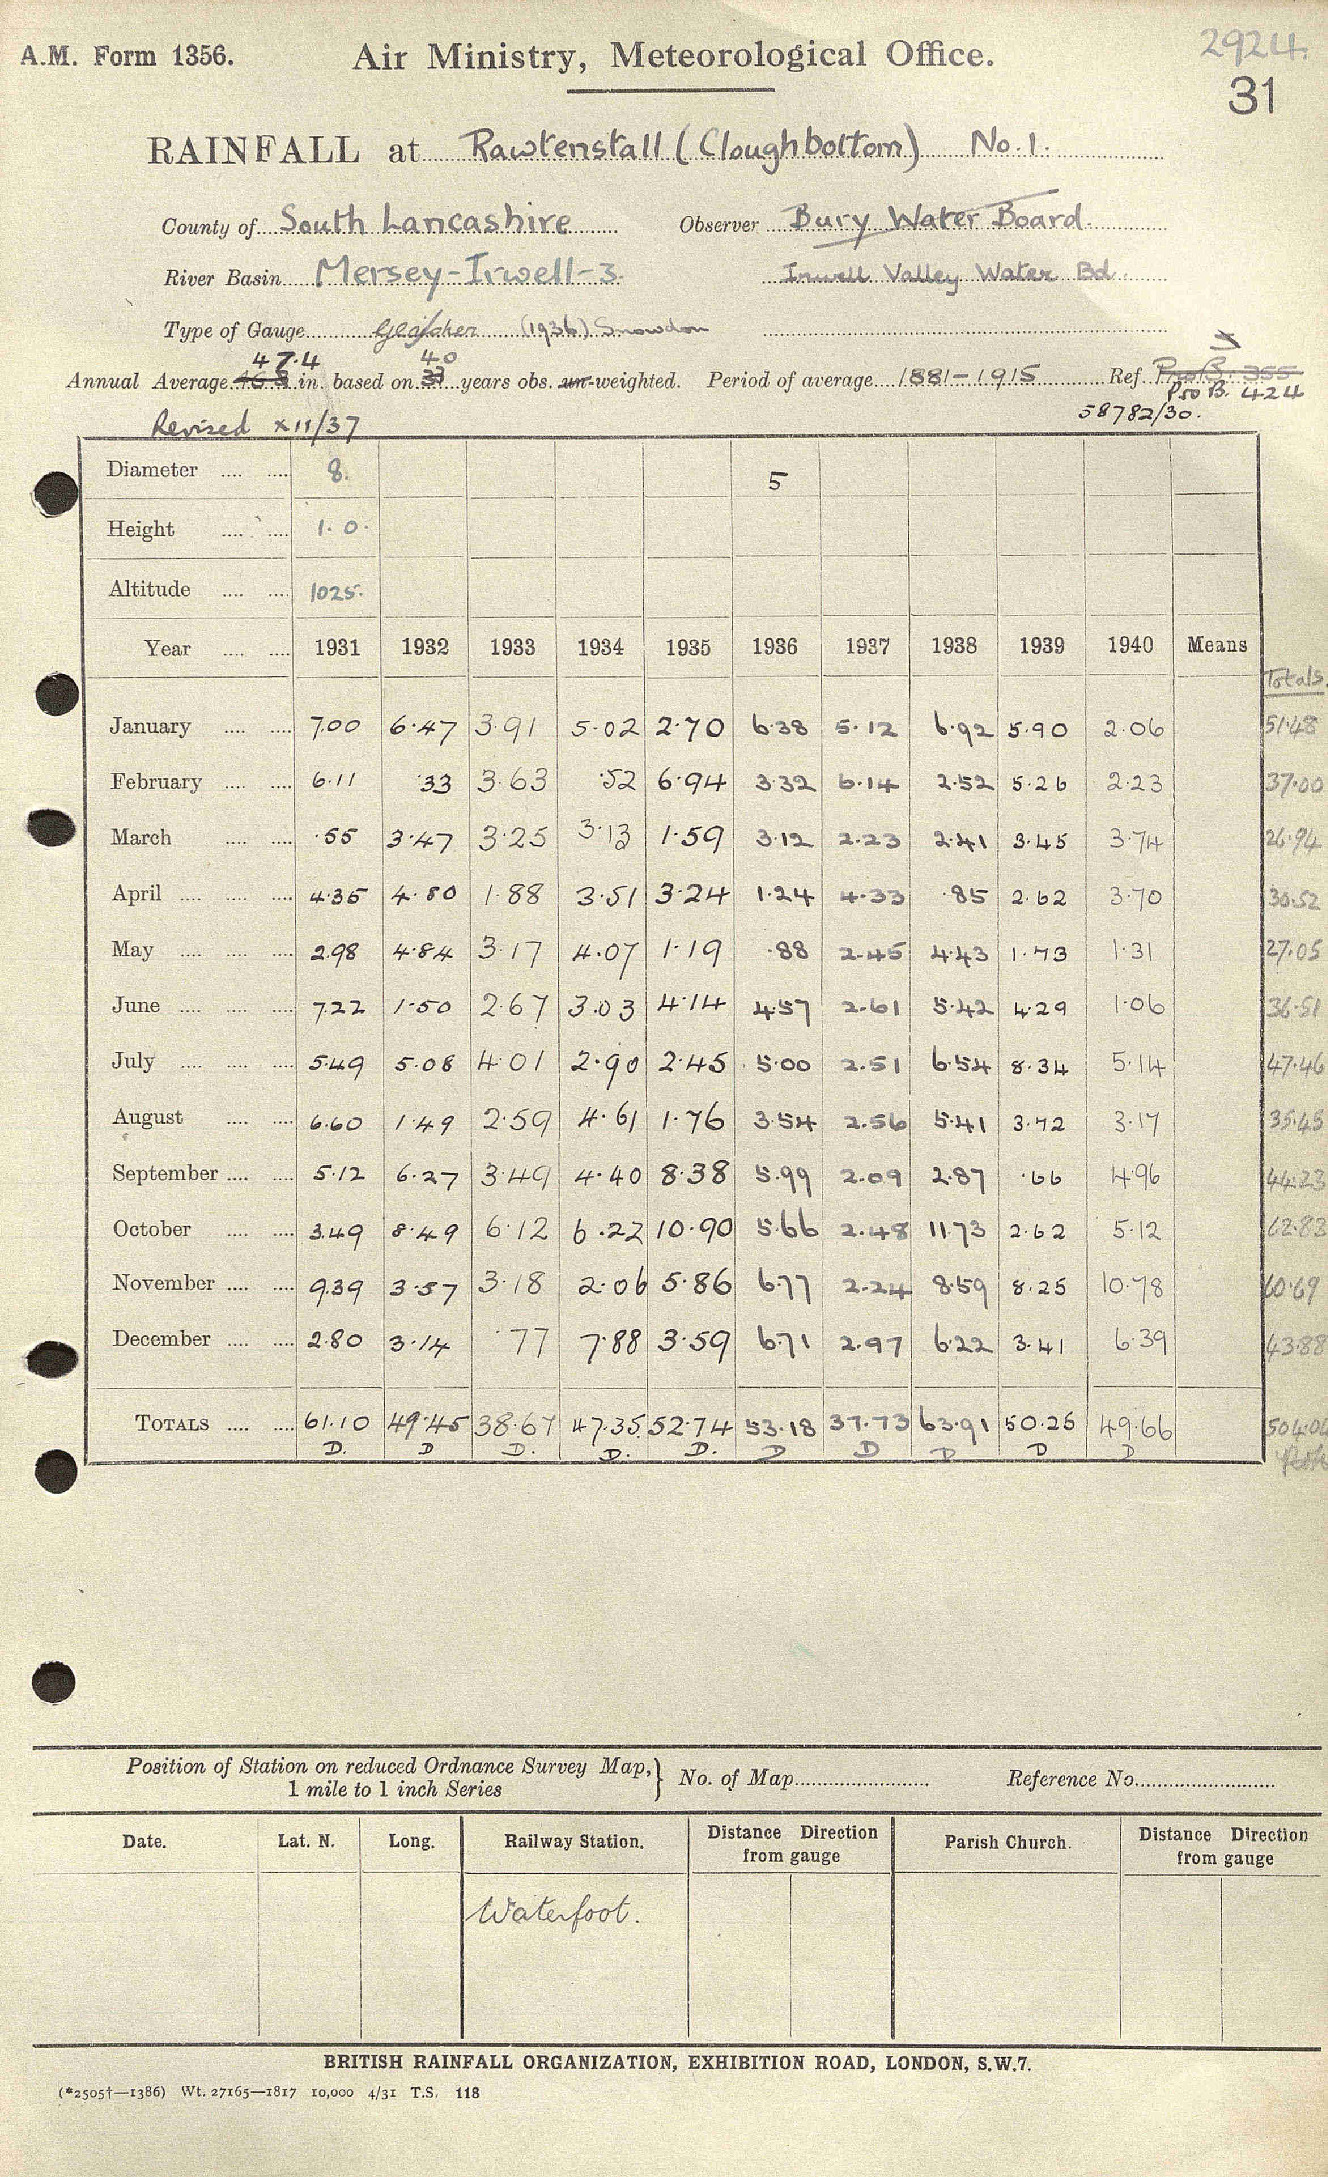 A.M. Form 1356.
Air Ministry, Meteorological Office.
2924.
31
RAINFALL at Rawtenstall (Cloughbottom) No. 1.
County of South Lancashire Observer Bury Water Board.
River Basin Mersey-Irwell-3. Irwell Valley Water Bd.
Type of Gauge Glaisher (1936) Snowdon
47.4 40
Annual Average in. based on 33 years obs. un-weighted. Period of average 1881-1915 Ref. Pro B. 355
Pro B. 424
Revised XII/37 58782/30.
Diameter 8. 5
Height 1.0.
Altitude 1025.
Year 1931 1932 1933 1934 1935 1936 1937 1938 1939 1940 Means Totals.
January 7.00 6.47 3.91 5.02 2.70 6.38 5.12 6.92 5.90 2.06 51.48
February 6.11 .33 3.63 .52 6.94 3.32 6.14 2.52 5.26 2.23 37.00
March .55 3.47 3.25 3.13 1.59 3.12 2.23 2.41 3.45 3.74 26.94
April 4.35 4.80 1.88 3.51 3.24 1.24 4.33 .85 2.62 3.70 30.52
May 2.98 4.84 3.17 4.07 1.19 .88 2.45 4.43 1.73 1.31 27.05
June 7.22 1.50 2.67 3.03 4.14 4.57 2.61 5.42 4.29 1.06 36.51
July 5.49 5.08 4.01 2.90 2.45 5.00 2.51 6.54 8.34 5.14 47.46
August 6.60 1.49 2.59 4.61 1.76 3.54 2.56 5.41 3.72 3.17 35.45
September 5.12 6.27 3.49 4.40 8.38 5.99 2.09 2.87 .66 4.96 44.23
October 3.49 8.49 6.12 6.22 10.90 5.66 2.48 11.73 2.62 5.12 62.83
November 9.39 3.57 3.18 2.06 5.86 6.77 2.24 8.59 8.25 10.78 60.69
December 2.80 3.14 .77 7.88 3.59 6.71 2.97 6.22 3.41 6.39 43.88
TOTALS 61.10 49.45 38.67 47.35 52.74 53.18 37.73 63.91 50.25 49.66 504.04
D. D D. D. D. D D D D D
Position of Station on reduced Ordnance Survey Map,
1 mile to 1 inch Series } No. of Map Reference No.
Date. Lat. N. Long. Railway Station. Distance Direction from gauge Parish Church. Distance Direction from gauge
Waterfoot.
BRITISH RAINFALL ORGANIZATION, EXHIBITION ROAD, LONDON, S.W.7.
(*2505†—1386) Wt. 27165—1817 10,000 4/31 T.S. 118